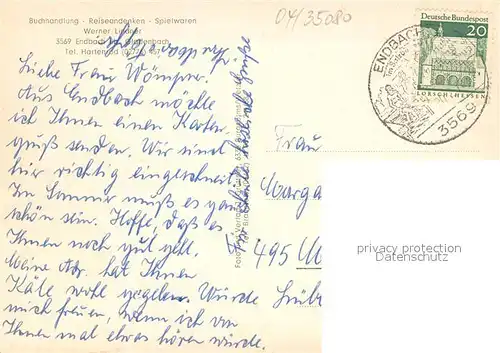 Buchhandlung - Reiseandenken - Spielwaren
Werner Lindner
3569 Endbach
Tel. Hartenrod
04/35080
DEUTSCHE BUNDESPOST
20
LORSCH/HESSEN
ENDBACH
3569
Liebe Frau Wömpner.
Aus Endbach möchte
ich Ihnen einen Karten
gruß senden. Wir sind
hier richtig eingeschneit
Im Sommer muß es ganz
schön sein. Hoffe, daß es
Ihnen noch gut geht.
Meine Adr. hat Ihnen
Käte wohl gegeben. Würde
mich freuen, wenn ich von
Ihnen mal etwas hören würde.
Für heute herzliche Grüße
Frau
Marga
495 M
Lüb
privacy protection
Datenschutz